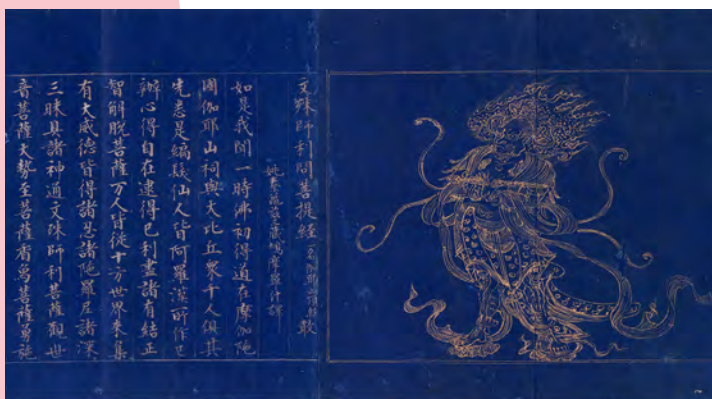 文殊師利問菩提經 一名伽耶山頂經 敢
姚秦龜茲三藏鳩摩羅什譯
如是我聞一時佛初得道在摩伽陁
國伽耶山祠與大比丘衆千人俱其
先悉是編髮仙人皆阿羅漢所作已
辦心得自在逮得已利盡諸有結正
智解脫菩薩万人皆從十方世界來集
有大威德皆得諸忍諸陁羅尼諸深
三昧具諸神通文殊師利菩薩觀世
音菩薩大勢至菩薩香象菩薩勇施